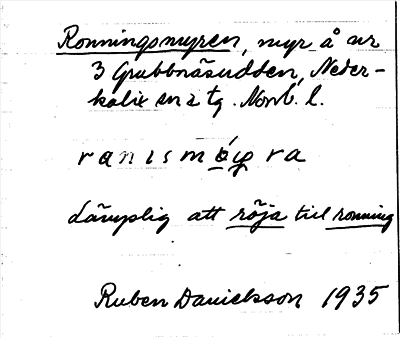 Ronningsmyren, myr å ur
3 Grubbnäsudden, Neder-
kalix sn 2 tg. Norrb. l.
ranısmɵ́yra
Lämplig att röja till ronning
Ruben Danielsson 1935